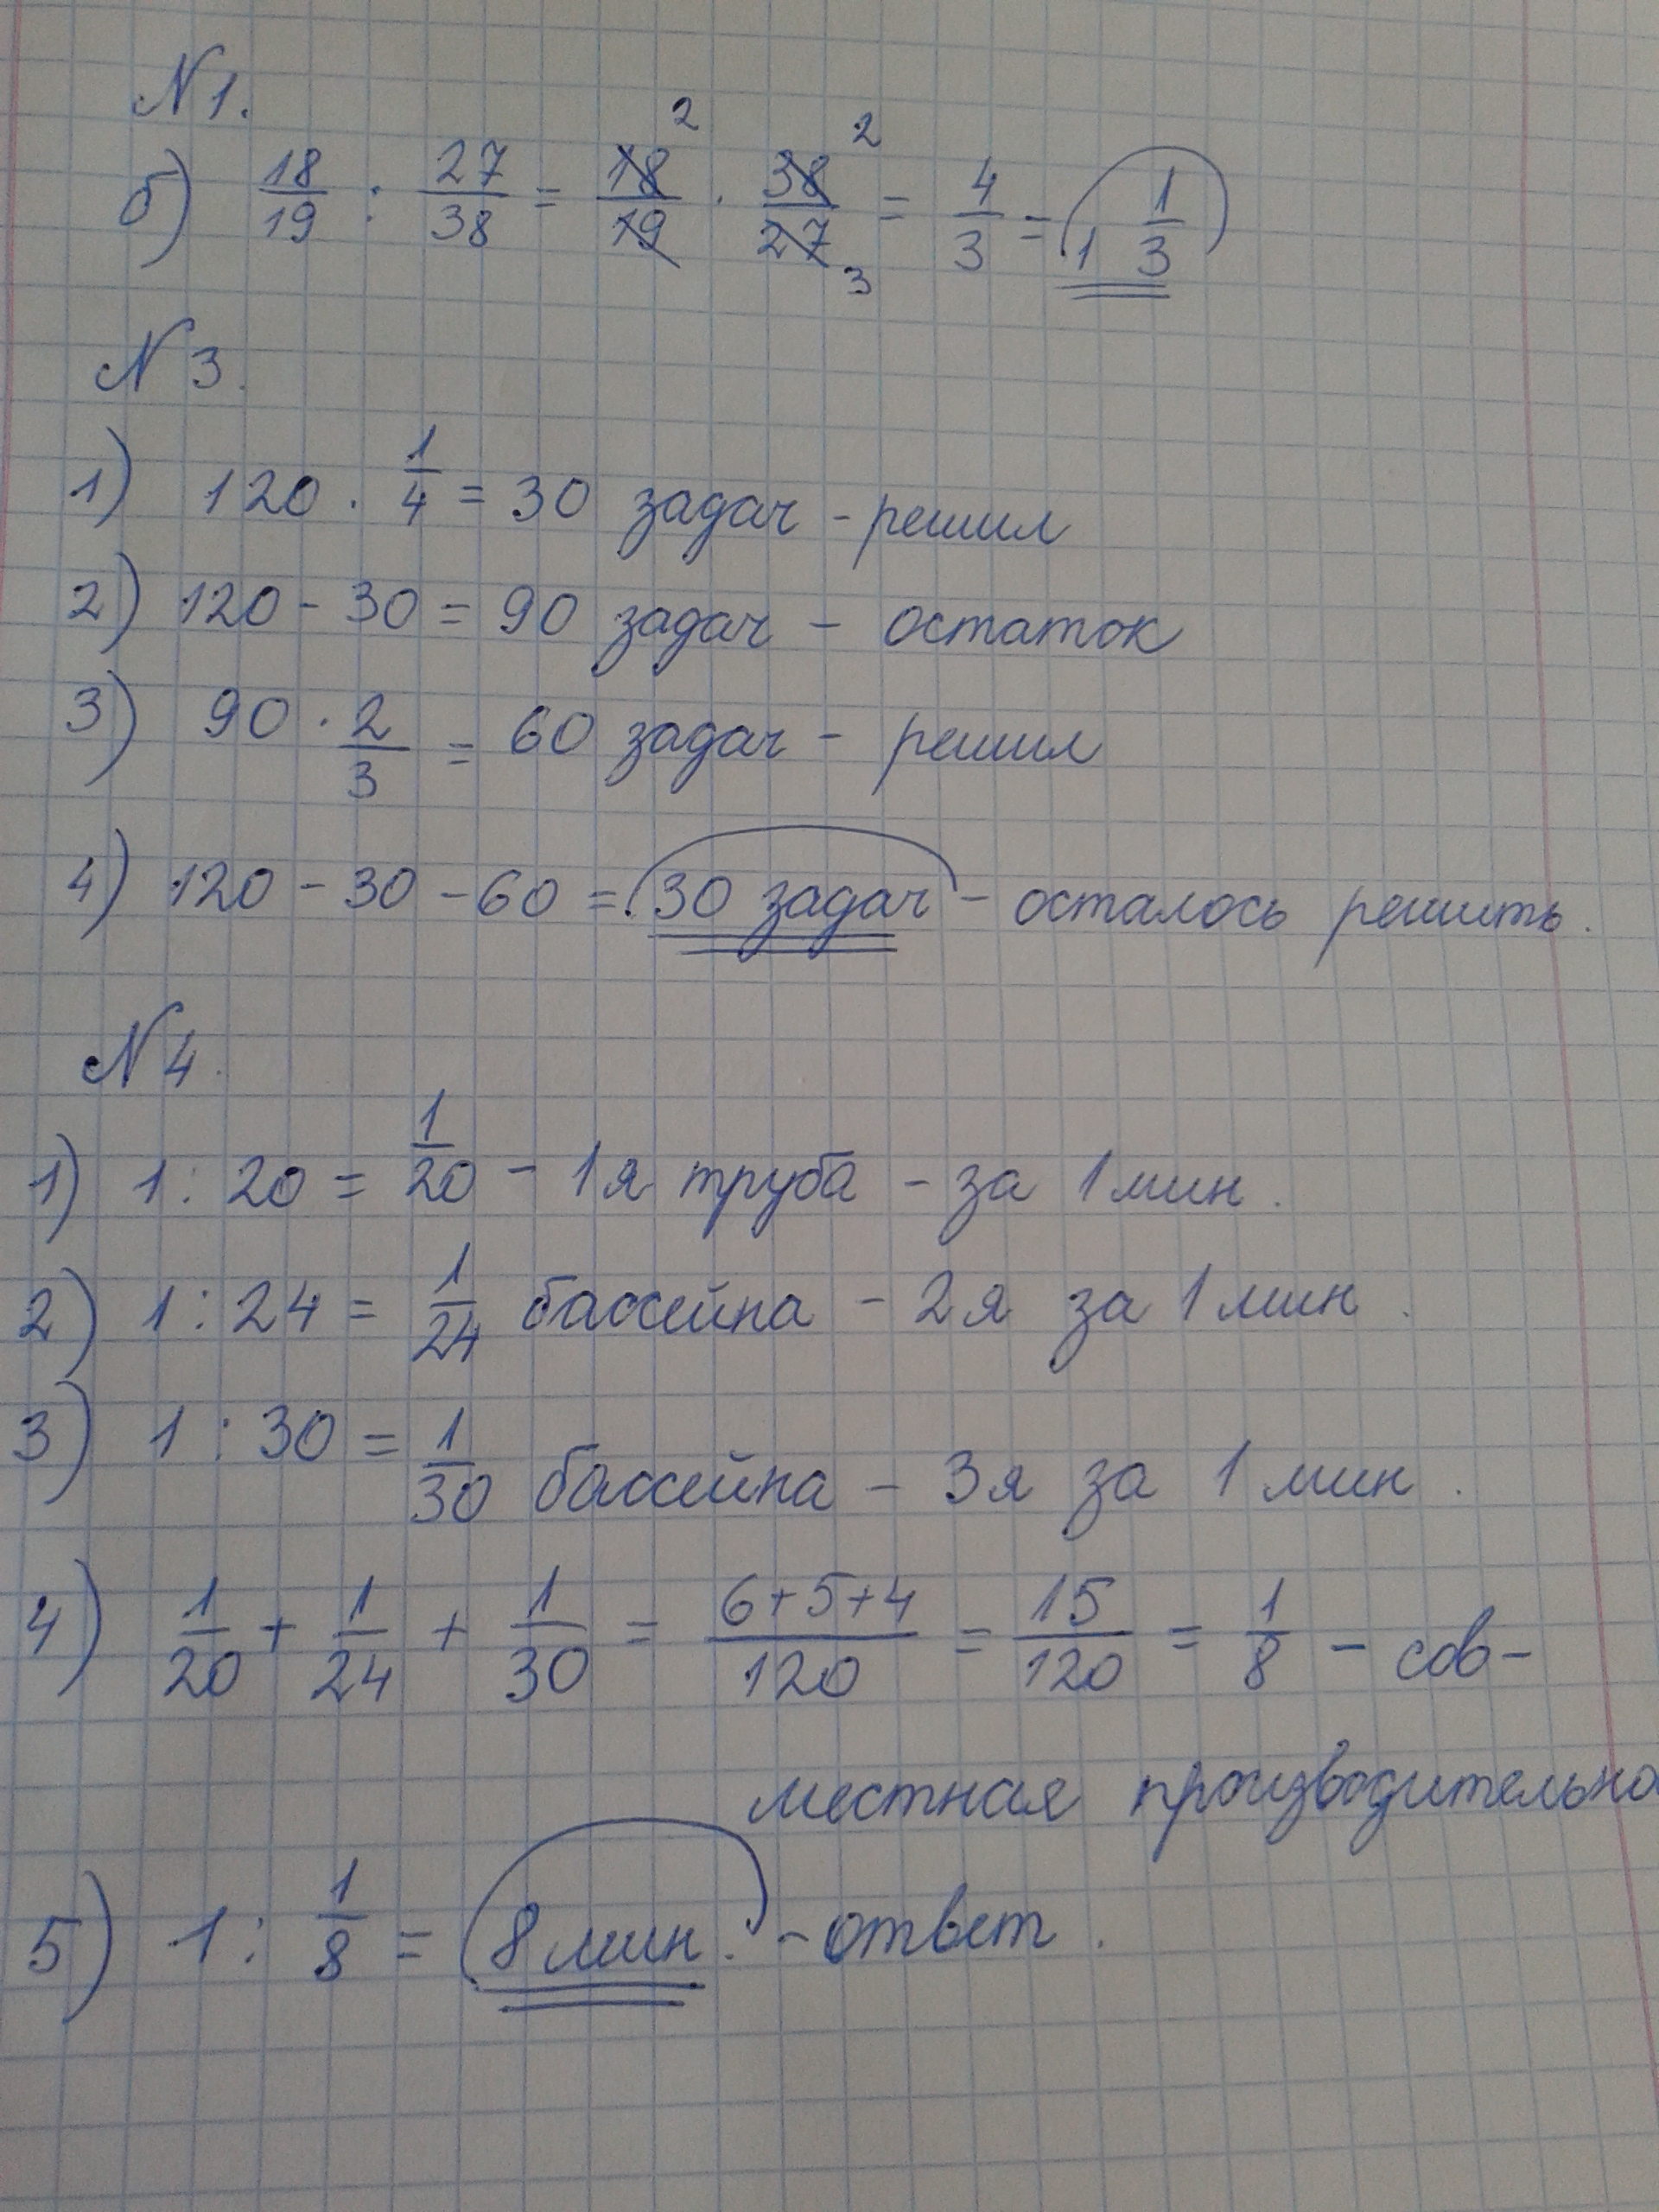 N1.
б) 18/19 : 27/38 = 18/19 2 · 38/27 2 3 = 4/3 = 1 1/3
N3.
1) 120 · 1/4 = 30 задач - решил
2) 120 - 30 = 90 задач - остаток
3) 90 · 2/3 = 60 задач - решил
4) 120 - 30 - 60 = 30 задач - осталось решить.
N4.
1) 1 : 20 = 1/20 - 1я труба - за 1 мин.
2) 1 : 24 = 1/24 бассейна - 2я за 1 мин.
3) 1 : 30 = 1/30 бассейна - 3я за 1 мин.
4) 1/20 + 1/24 + 1/30 = 6+5+4/120 = 15/120 = 1/8 - сов-
местная производительно
5) 1 : 1/8 = 8 мин. - ответ.